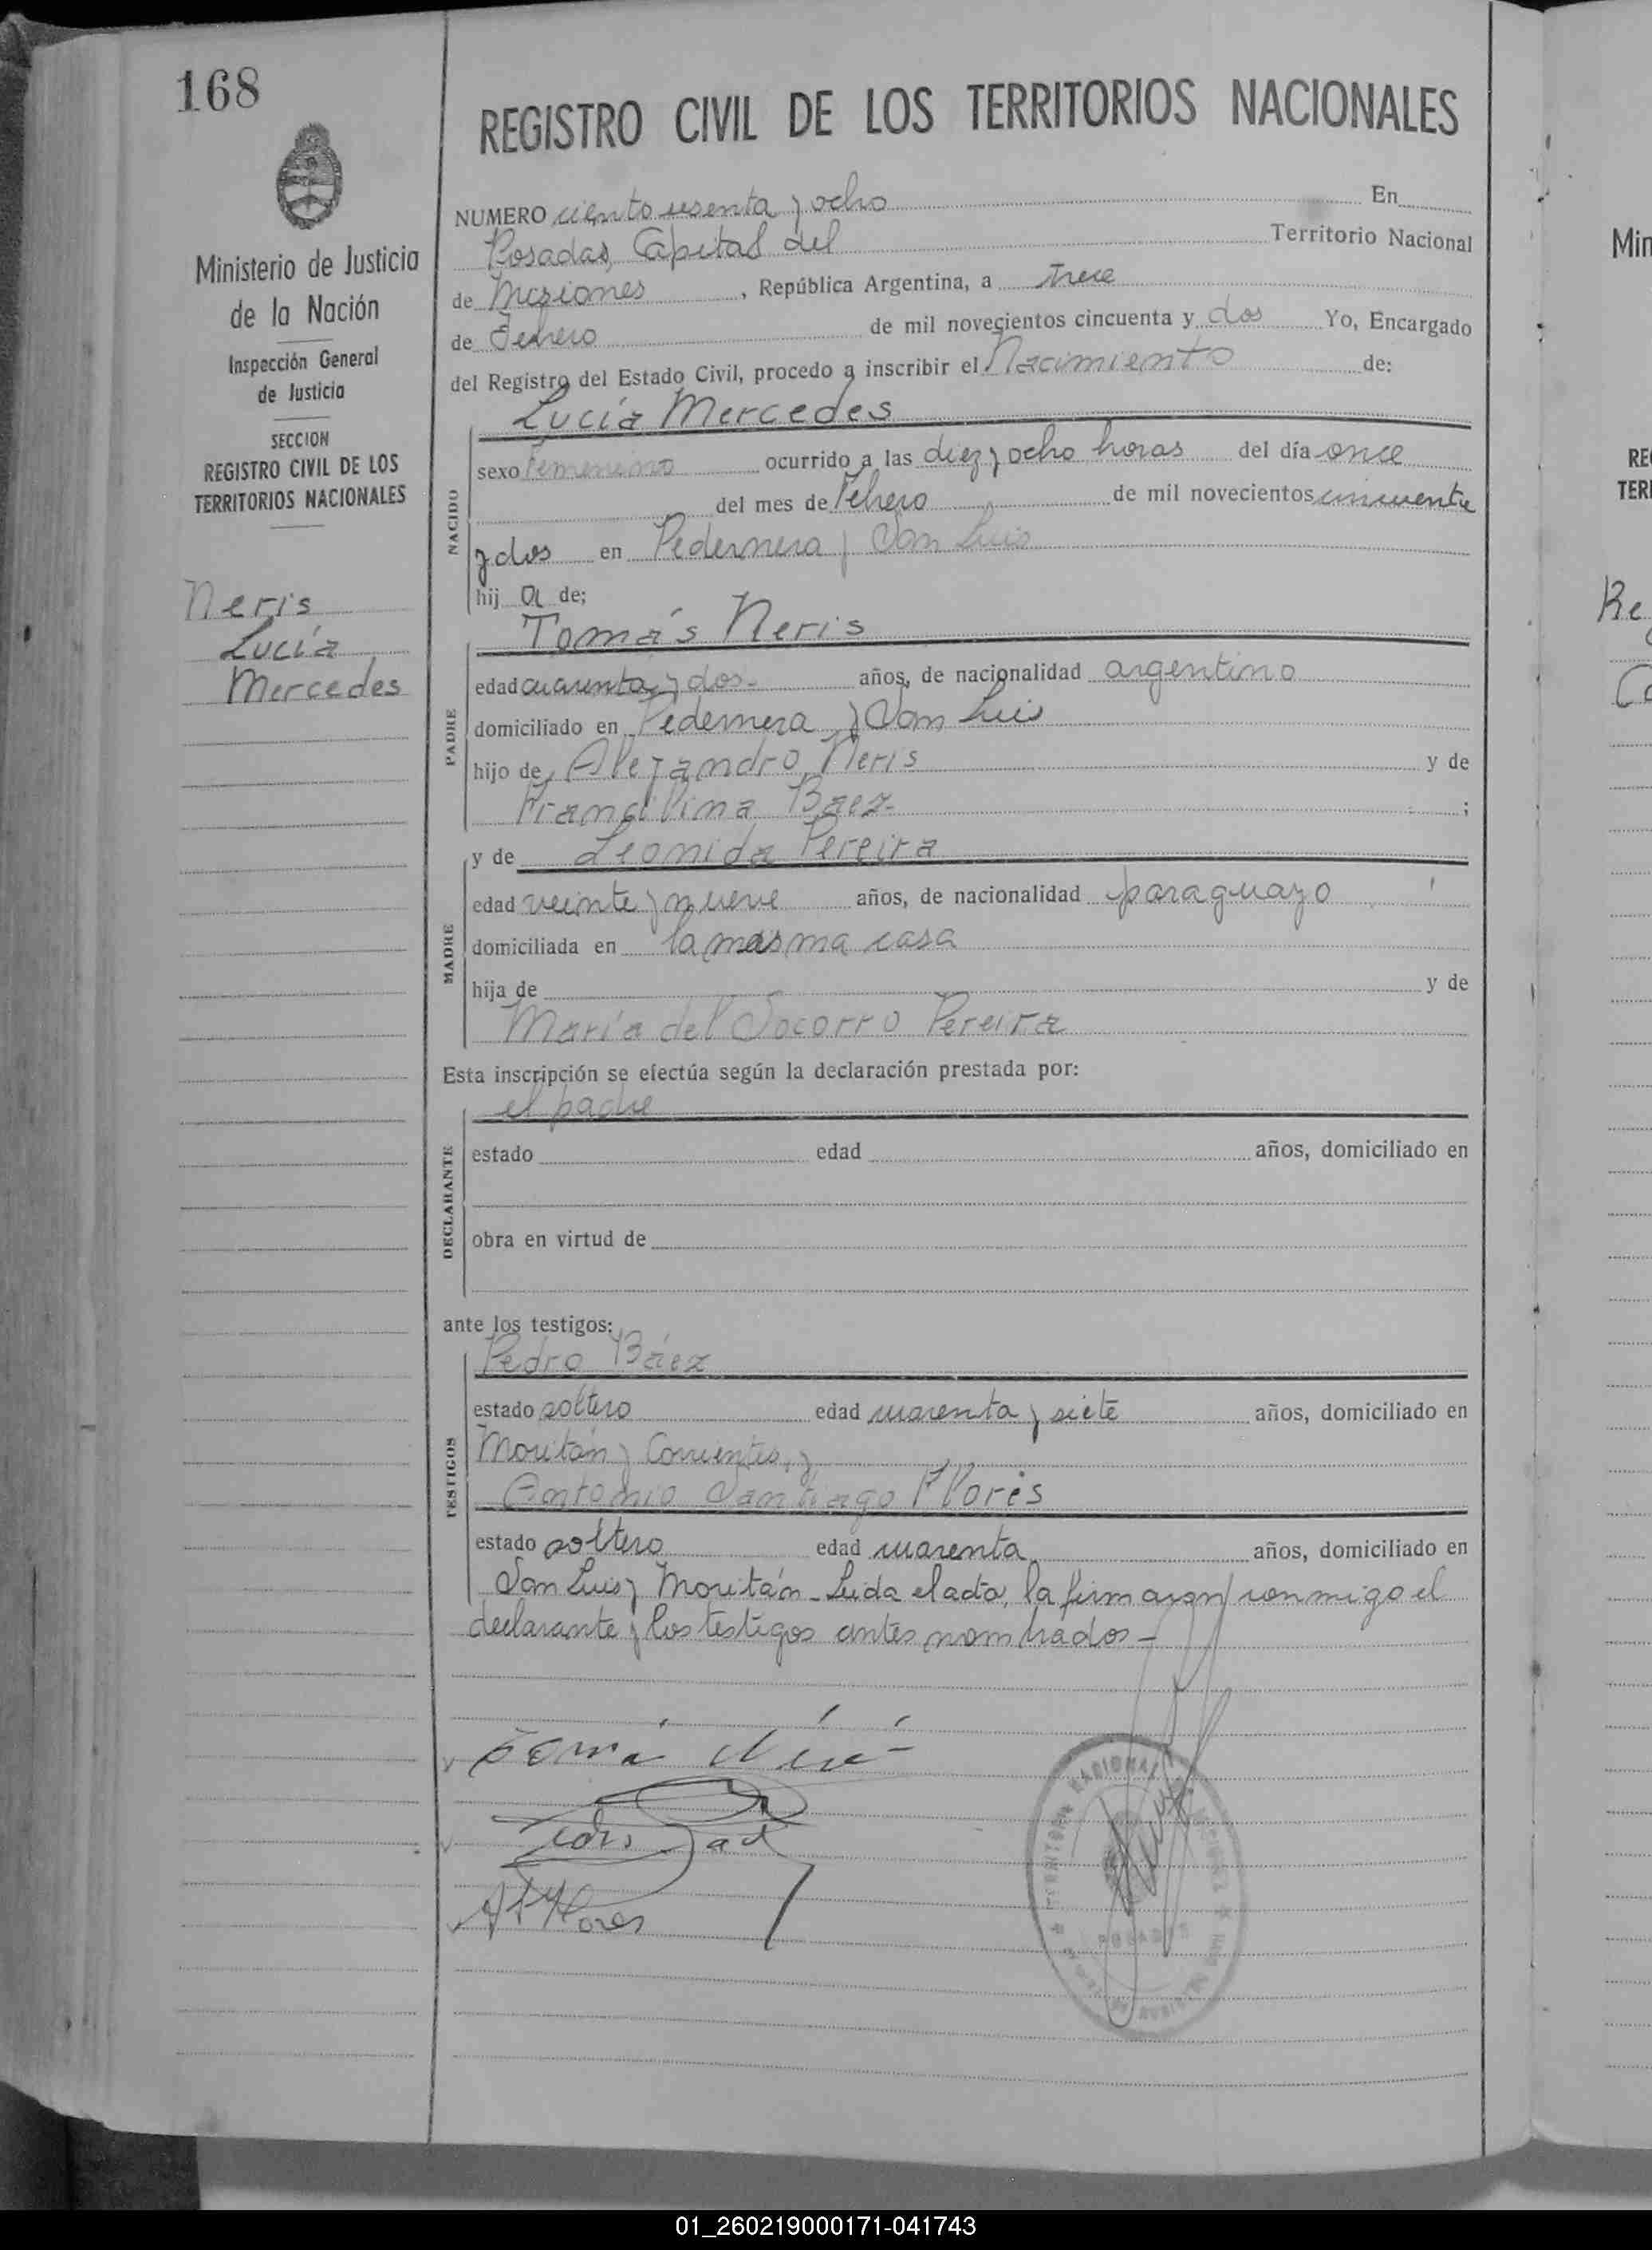 168
REGISTRO CIVIL DE LOS TERRITORIOS NACIONALES
Ministerio de Justicia
de la Nación
Inspección General
de Justicia
SECCION
REGISTRO CIVIL DE LOS
TERRITORIOS NACIONALES
Neris
Lucía
Mercedes
NUMERO ciento sesenta y ocho En
Posadas, Capital del Territorio Nacional
de Misiones, República Argentina, a trece
de Febrero de mil novecientos cincuenta y dos Yo, Encargado
del Registro del Estado Civil, procedo a inscribir el Nacimiento de:
NACIDO
Lucía Mercedes
sexo femenino ocurrido a las diez y ocho horas del día once
del mes de Febrero de mil novecientos cincuenta
y dos en Pedernera y San Luis
hij a de;
PADRE
Tomás Neris
edad cuarenta y dos- años, de nacionalidad argentino
domiciliado en Pedernera y San Luis
hijo de Alejandro Neris y de
Francilina Báez- ;
MADRE
y de Leonida Pereira
edad veinte y nueve años, de nacionalidad paraguayo
domiciliada en la misma casa
hija de y de
María del Socorro Pereira
Esta inscripción se efectúa según la declaración prestada por:
DECLARANTE
el padre
estado edad años, domiciliado en
obra en virtud de
ante los testigos:
TESTIGOS
Pedro Báez
estado soltero edad cuarenta y siete años, domiciliado en
Moritán y Corrientes, y
Antonio Santiago Flores
estado soltero edad cuarenta años, domiciliado en
San Luis y Moritán - Leida el acta, la firmaron conmigo el
declarante y los testigos antes nombrados -
A S Flores
POSADAS
Min
RE
TERI
Re
01_260219000171-041743